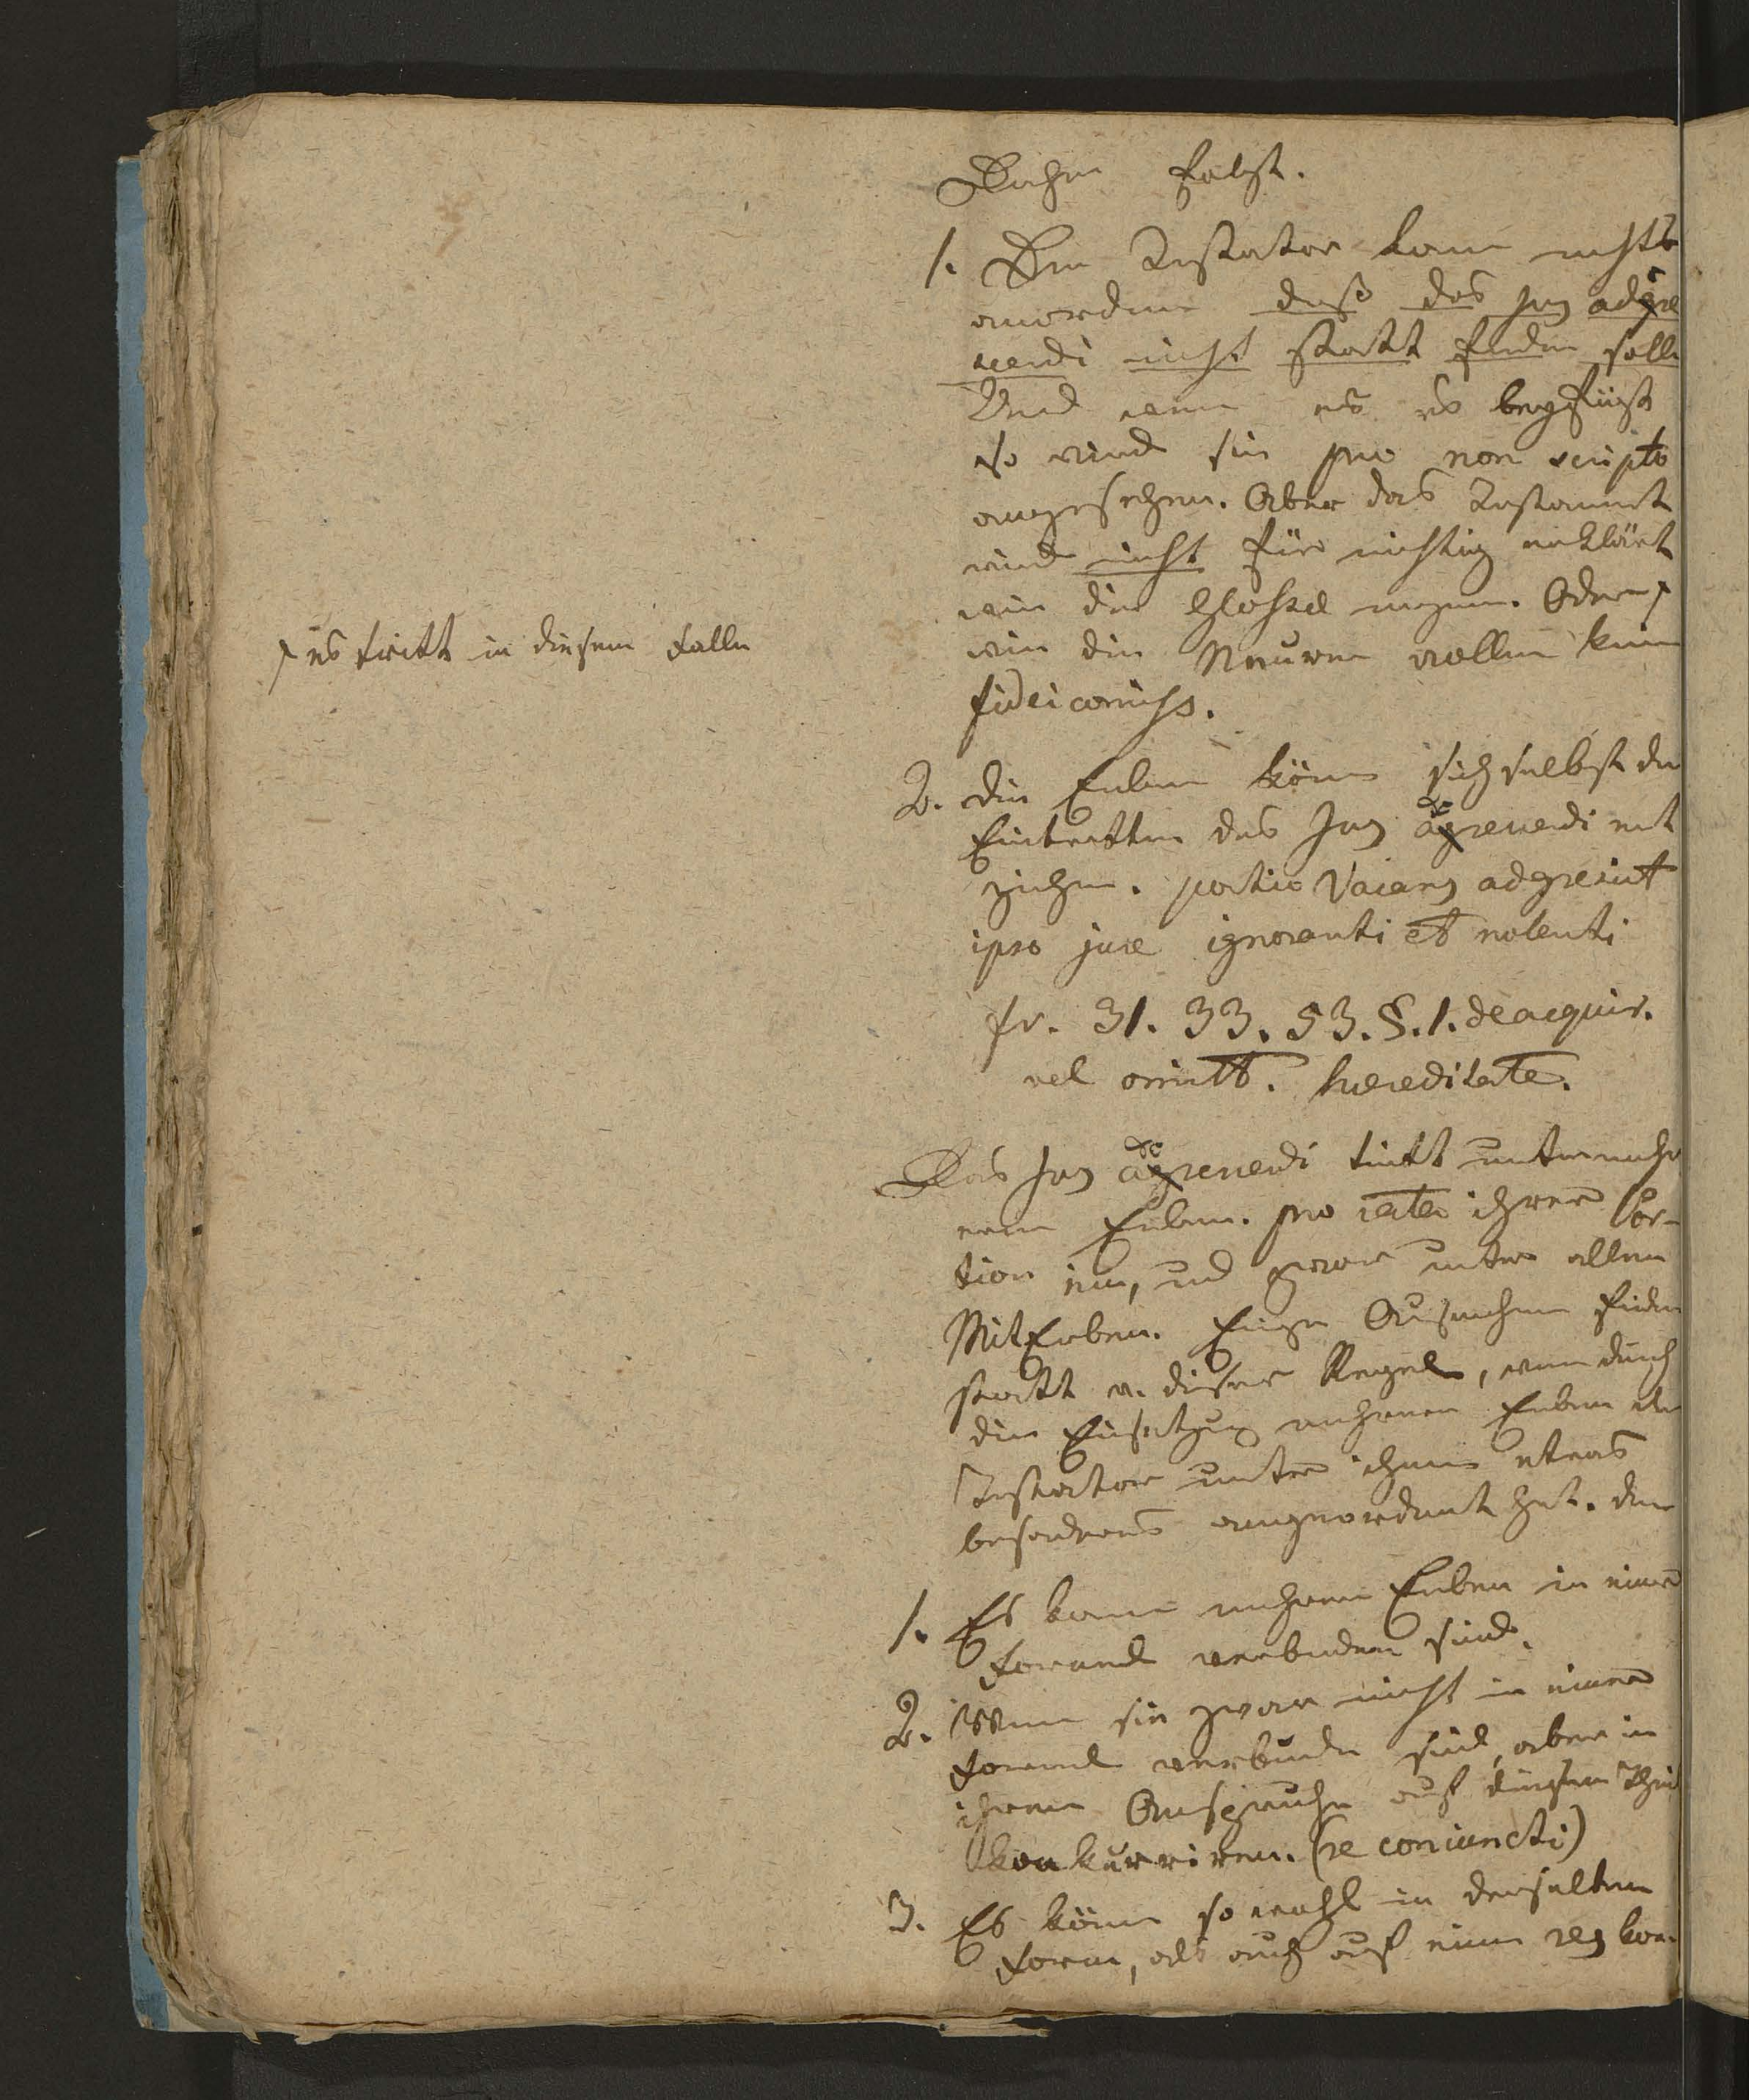 Daher folgt.
1. Der Testator kann nicht
anordnen daß das Jus adcre
scendi nicht statt finden solle
Und wenn er es beyfügt
so wird sie pro non scripto
angesehen. Aber das Testament
wird nicht für nichtig erklärt
wie die Glossae meynen. Oder
es tritt in diesem Falle
wie die Neuern wollen kein
fideicomiss.
2. Die Erben könen sich selbst den
Eintretten des Jus adcrescendi ent
ziehen. portio vacans adcrescit
ipso jure ignoranti et nolenti
fr. 31. 33. 53. §. 1. de acquir.
vel omitt. haereditate.
Das Jus adcrescendi tritt unter mehr
eren Erben. pro rata ihrer Por-
tion ein, und zwar unter allen
MitErben. Einige Ausnahmen finden
statt v. dieser Regel, wenn durch
die Einsetzung mehrerer Erben der
Testator unter ihnen etwas
besonderes angeordnet hat. den
1. Es kann mehrere Erben in einer
Formel verbunden sind.
2. Wenn sie zwar nicht in einer
Formel verbunden sind, aber in
ihrem Anspruche auf diesen Theil
konkurriren. (re coniuncti)
3. Es könen so wohl in derselben
Form, als auch auf eine res kon-